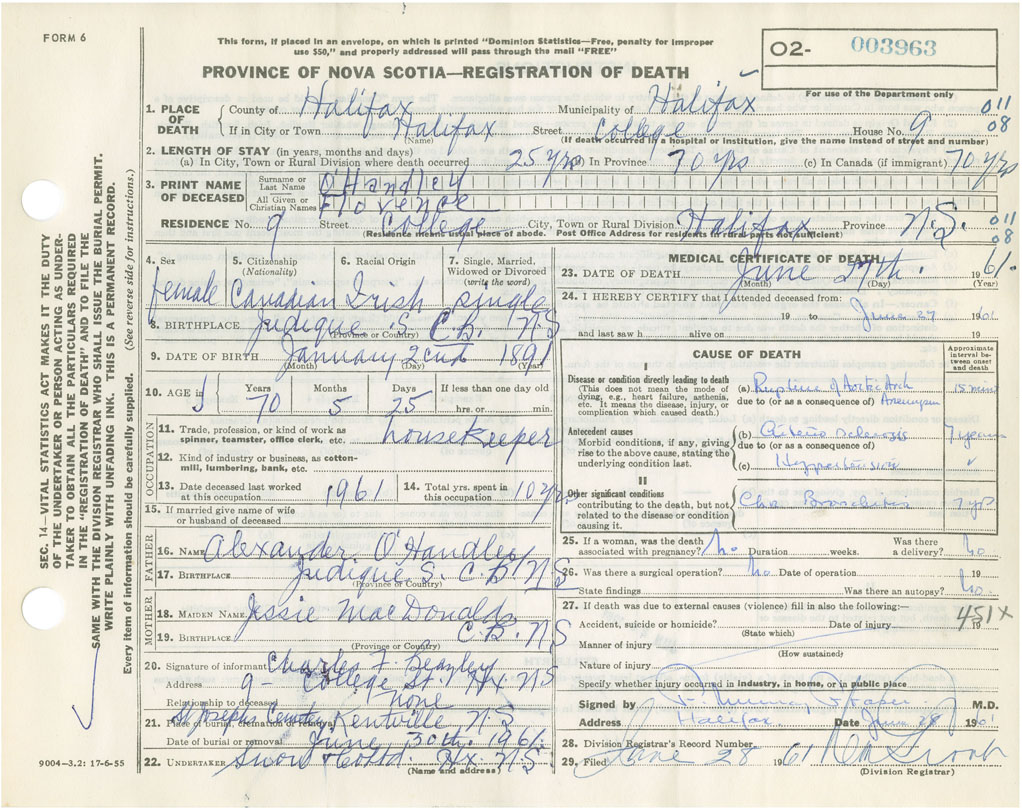 FORM 6
This form, if placed in an envelope, on which is printed "Dominion Statistics—Free, penalty for improper
use $50," and properly addressed will pass through the mail "FREE"
PROVINCE OF NOVA SCOTIA—REGISTRATION OF DEATH
02- 003963
For use of the Department only
1. PLACE OF DEATH County of Halifax Municipality of Halifax 011
If in City or Town Halifax Street College House No. 9 08
(Name) (If death occurred in a hospital or institution, give the name instead of street and number)
2. LENGTH OF STAY (in years, months and days)
(a) In City, Town or Rural Division where death occurred 25 yrs (b) In Province 70 yrs (c) In Canada (if immigrant) 70 yrs
3. PRINT NAME OF DECEASED Surname or Last Name O'Handley
All Given or Christian Names Florence
RESIDENCE No. 9 Street College City, Town or Rural Division Halifax Province N.S. 011
08
(Residence means usual place of abode. Post Office Address for residents in rural parts not sufficient)
4. Sex female
5. Citizenship (Nationality) Canadian
6. Racial Origin Irish
7. Single, Married, Widowed or Divorced (write the word) single
8. BIRTHPLACE Judique S. C.B. N.S
(Province or Country)
9. DATE OF BIRTH January 2nd 1891
(Month) (Day) (Year)
10. AGE in Years 70 Months 5 Days 25 If less than one day old
hrs. or min.
OCCUPATION
11. Trade, profession, or kind of work as spinner, teamster, office clerk, etc. housekeeper
12. Kind of industry or business, as cotton-mill, lumbering, bank, etc.
13. Date deceased last worked at this occupation 1961
14. Total yrs. spent in this occupation 10 yrs
15. If married give name of wife or husband of deceased
FATHER
16. NAME Alexander O'Handley
17. BIRTHPLACE Judique S. C.B. N.S
(Province or Country)
MOTHER
18. MAIDEN NAME Jessie MacDonald
19. BIRTHPLACE C.B. N.S
(Province or Country)
20. Signature of informant Charles F. Beazley
Address 9 - College St. Hx N.S
Relationship to deceased none
21. Place of burial, cremation or removal St Josephs Cemetery Kentville N.S
Date of burial or removal June 30th. 1961.
22. UNDERTAKER Snow & Co Ltd. Hx. N.S.
(Name and address)
MEDICAL CERTIFICATE OF DEATH
23. DATE OF DEATH June 27th. 1961.
(Month) (Day) (Year)
24. I HEREBY CERTIFY that I attended deceased from:
19 to June 27 1961
and last saw h alive on 19
CAUSE OF DEATH
Approximate interval between onset and death
I
Disease or condition directly leading to death
(This does not mean the mode of dying, e.g., heart failure, asthenia, etc. It means the disease, injury, or complication which caused death.)
(a) Rupture of Aortic Arch 15 min
due to (or as a consequence of) Aneurysm
Antecedent causes
Morbid conditions, if any, giving rise to the above cause, stating the underlying condition last.
(b) Arterio Sclerosis 7 years
due to (or as a consequence of)
(c) Hypertension "
II
Other significant conditions
contributing to the death, but not related to the disease or condition causing it.
Chr Bronchitis 7 yrs
25. If a woman, was the death associated with pregnancy? no Duration weeks. Was there a delivery? no
26. Was there a surgical operation? no Date of operation 19
State findings Was there an autopsy? no.
27. If death was due to external causes (violence) fill in also the following:—
451X
Accident, suicide or homicide? Date of injury 19
(State which)
Manner of injury
(How sustained)
Nature of injury
Specify whether injury occurred in industry, in home, or in public place
Signed by F. Murray Fraser M.D.
Address Halifax Date June 28 1961
28. Division Registrar's Record Number
29. Filed June 28 1961
(Division Registrar)
SEC. 14—VITAL STATISTICS ACT MAKES IT THE DUTY
OF THE UNDERTAKER OR PERSON ACTING AS UNDER-
TAKER TO OBTAIN ALL THE PARTICULARS REQUIRED
IN THE "REGISTRATION OF DEATH" AND TO FILE THE
SAME WITH THE DIVISION REGISTRAR WHO SHALL ISSUE THE BURIAL PERMIT.
WRITE PLAINLY WITH UNFADING INK. THIS IS A PERMANENT RECORD.
Every item of information should be carefully supplied. (See reverse side for instructions.)
9004—3.2: 17-6-55